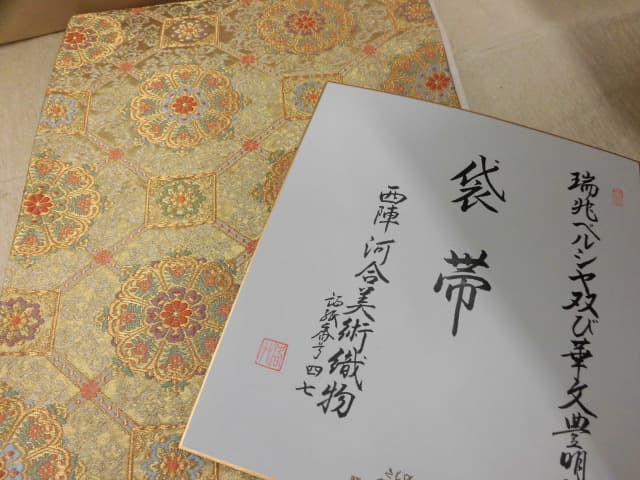 瑞兆ペルシヤ双び華文豊明
袋帯
西陣 河合美術織物
証紙番号 四七